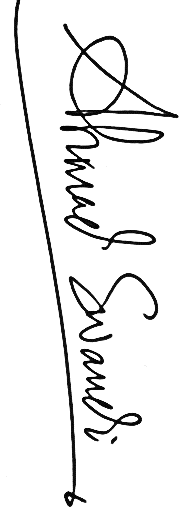 Ahmad Swandi